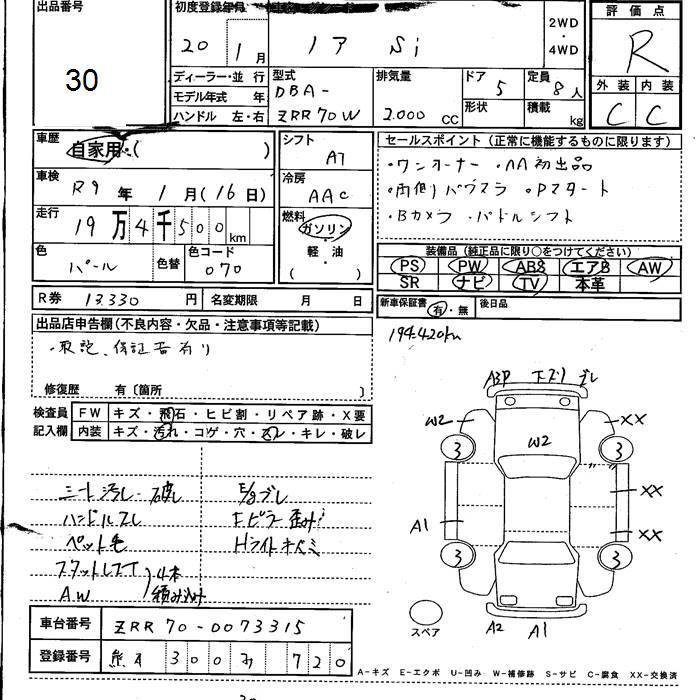 出品番号
30
初度登録年月
20年 1月
ノア Si
2WD
・
4WD
評価点
R
外装 内装
C C
ディーラー・並行
モデル年式 年
ハンドル 左・右
型式
DBA-
ZRR70W
排気量
2.000 CC
ドア 5
形状
定員 8人
積載 kg
車歴
自家用・( )
車検
R9年 1月(16日)
走行
19万4千500km
色
パール
色替
色コード
070
シフト
AT
冷房
AAC
燃料
ガソリン
・
軽油
( )
セールスポイント(正常に機能するものに限ります)
・ワンオーナー ・AA初出品
・両側パワスラ ・Pスタート
・Bカメラ ・パドルシフト
装備品(純正品に限り○をつけてください)
PS PW ABS エアB AW
SR ナビ TV 本革
R券 13330円
名変期限 月 日
新車保証書 有・無
後日品
194.420km
出品店申告欄(不良内容・欠品・注意事項等記載)
・取説、保証書有り
修復歴 有〔箇所 〕
検査員
記入欄
FW キズ・飛石・ヒビ割・リペア跡・X要
内装 キズ・汚れ・コゲ・穴・スレ・キレ・破レ
シート汚レ・破レ
ハンドルスレ
ペット毛
スタットレスT
AW
4本
積み込み
Hライトキバミ
A3P 下ズリ ズレ
W2
XX
3
3
W2
XX
A1
XX
3
3
スペア
A2
A1
車台番号 ZRR70-0073315
登録番号 熊本 300 720
A-キズ E-エクボ U-凹み W-補修跡 S-サビ C-腐食 XX-交換済